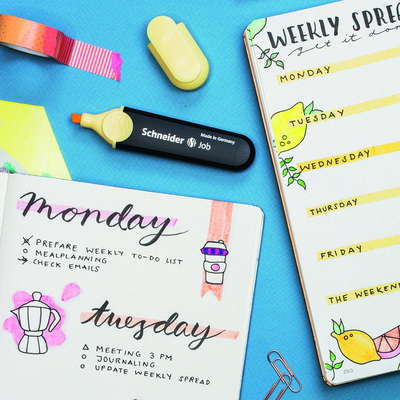 WEEKLY SPREA
get it don
MONDAY
TUESDAY
WEDNESDAY
THURSDAY
FRIDAY
THE WEEKEN
Schneider Job
Made in Germany
monday
PREPARE WEEKLY TO-DO LIST
MEALPLANNING
→ CHECK EMAILS
tuesday
MEETING 3 PM
JOURNALING
UPDATE WEEKLY SPREAD